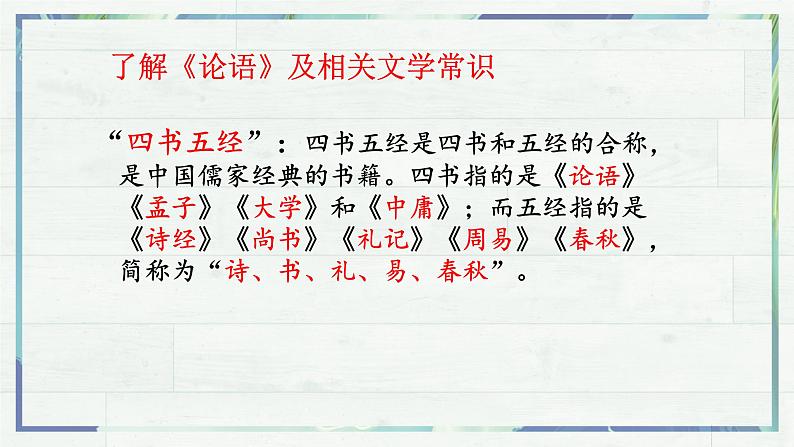 了解《论语》及相关文学常识
“四书五经”：四书五经是四书和五经的合称，
是中国儒家经典的书籍。四书指的是《论语》
《孟子》《大学》和《中庸》；而五经指的是
《诗经》《尚书》《礼记》《周易》《春秋》，
简称为“诗、书、礼、易、春秋”。